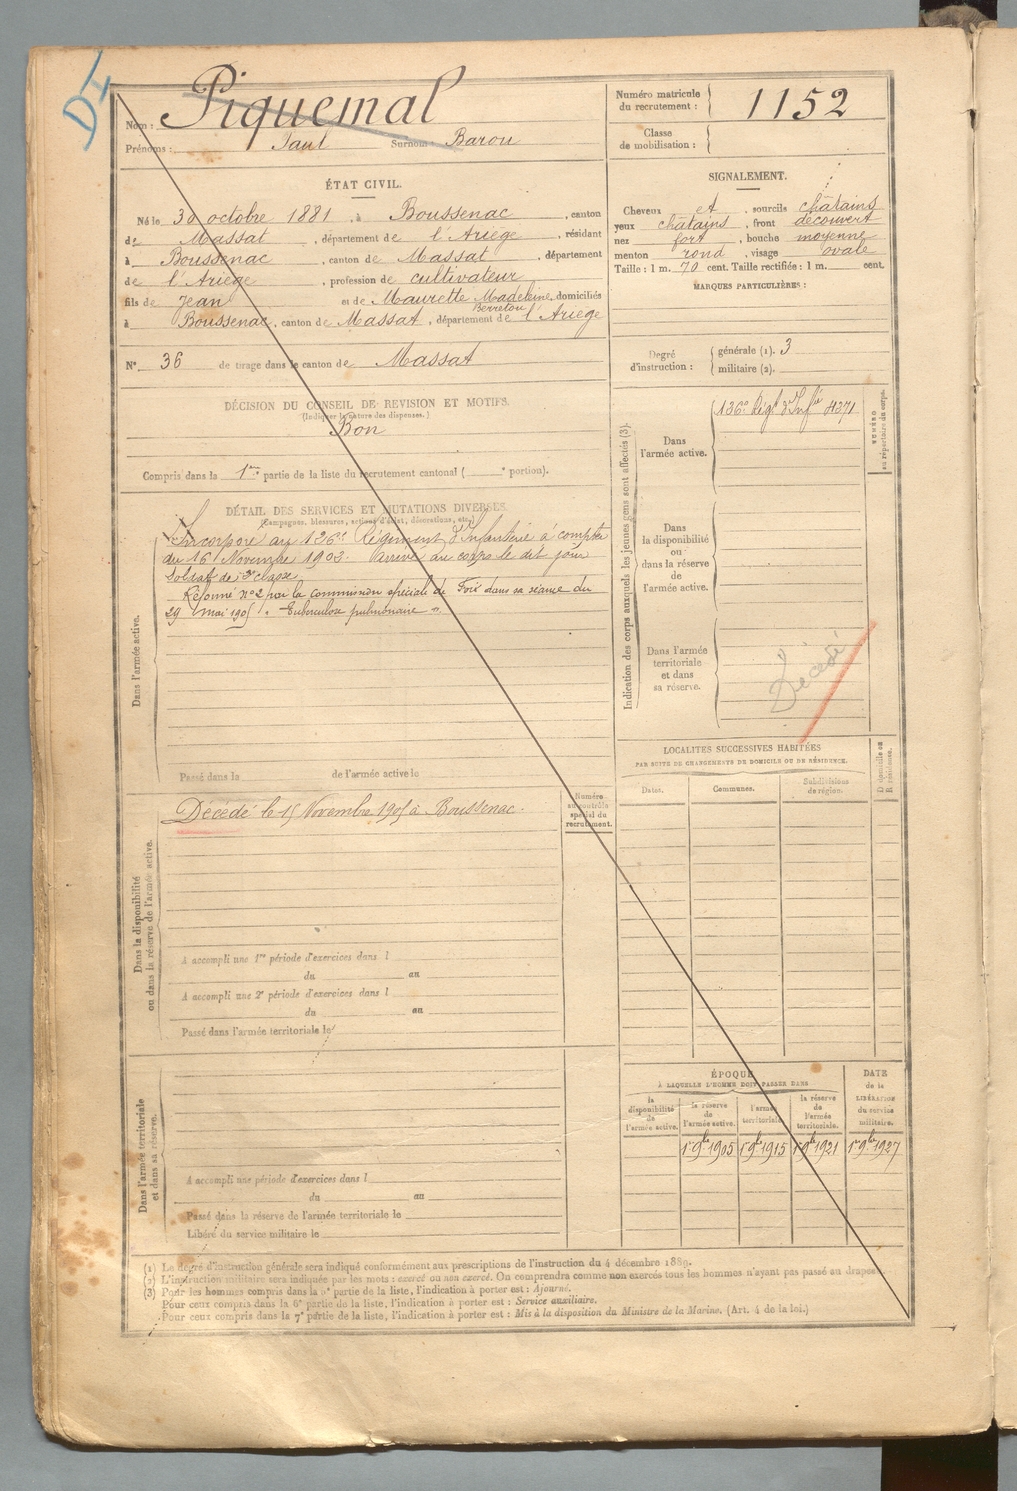 D I
Nom : Piquemal
Prénoms : Paul Surnoms : Barou
Numéro matricule du recrutement : 1152
Classe de mobilisation :
ÉTAT CIVIL.
Né le 30 octobre 1881, à Boussenac, canton
de Massat, département de l'Ariège, résidant
à Boussenac, canton de Massat, département
de l'Ariège, profession de cultivateur
fils de Jean et de Maurette Madeleine, domiciliés
Berretou
à Boussenac, canton de Massat, département de l'Ariège
N° 36 de tirage dans le canton de Massat
SIGNALEMENT.
Cheveux et, sourcils châtains
yeux châtains, front découvert
nez fort, bouche moyenne
menton rond, visage ovale
Taille : 1 m. 70 cent. Taille rectifiée : 1 m. cent.
MARQUES PARTICULIÈRES :
Degré d'instruction : générale (1). 3
militaire (2).
DÉCISION DU CONSEIL DE REVISION ET MOTIFS.
(Indiquer la nature des dispenses.)
Bon
Compris dans la 1re partie de la liste du recrutement cantonal ( e portion).
DÉTAIL DES SERVICES ET MUTATIONS DIVERSES.
(Campagnes, blessures, actions d'éclat, décorations, etc.)
Dans l'armée active.
Incorporé au 126e Régiment d'Infanterie à compter
du 16 Novembre 1902. Arrivé au corps le dit jour
Soldat de classe
Réformé n° 2 par la commission spéciale de Foix dans sa séance du
29 Mai 1905 "Tuberculose pulmonaire"
Passé dans la de l'armée active le
Dans la disponibilité
ou dans la réserve de l'armée active.
Décédé le 15 Novembre 1905 à Boussenac.
Numéro
au contrôle
spécial du
recrutement.
A accompli une 1re période d'exercices dans l
du au
A accompli une 2e période d'exercices dans l
du au
Passé dans l'armée territoriale le
Dans l'armée territoriale
et dans sa réserve.
A accompli une période d'exercices dans l
du au
Passé dans la réserve de l'armée territoriale le
Libéré du service militaire le
Indication des corps auxquels les jeunes gens sont affectés (3).
Dans
l'armée active.
126e Régt d'Infie
NUMÉRO
au répertoire du corps.
Dans
la disponibilité
ou
dans la réserve
de
l'armée active.
Dans l'armée
territoriale
et dans
sa réserve.
Décédé
LOCALITÉS SUCCESSIVES HABITÉES
PAR SUITE DE CHANGEMENTS DE DOMICILE OU DE RÉSIDENCE.
Dates.
Communes.
Subdivisions
de région.
D domicile ou
R résidence.
ÉPOQUE
À LAQUELLE L'HOMME DOIT PASSER DANS
la
disponibilité
de
l'armée active.
la réserve
de
l'armée active.
l'armée
territoriale.
la réserve
de
l'armée
territoriale.
DATE
de la
LIBÉRATION
du service
militaire.
1er 9bre 1905
1er 9bre 1915
1er 9bre 1921
1er 9bre 1927
(1) Le degré d'instruction générale sera indiqué conformément aux prescriptions de l'instruction du 4 décembre 1889.
(2) L'instruction militaire sera indiquée par les mots : exercé ou non exercé. On comprendra comme non exercés tous les hommes n'ayant pas passé au drapeau.
(3) Pour les hommes compris dans la partie de la liste, l'indication à porter est : Ajourné.
Pour ceux compris dans la 6e partie de la liste, l'indication à porter est : Service auxiliaire.
Pour ceux compris dans la 7e partie de la liste, l'indication à porter est : Mis à la disposition du Ministre de la Marine. (Art. 4 de la loi.)